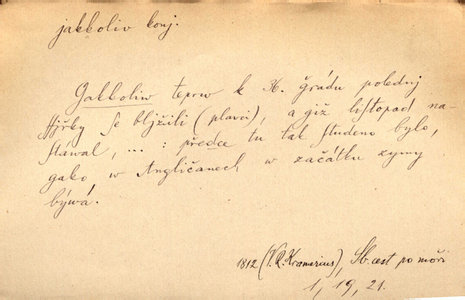 jakkoliv konj.
Gakkoliw teprw k 36. grádu poledнj
ssjřky se bljžili (plavci), a giž listopad na-
stáwal, ... : předce tu tak studeno bylo,
gako w Angličanech w začátku zymy
býwá.
1812 (V. R. Kramerius), Sb. cest po moři
1, 19, 21.